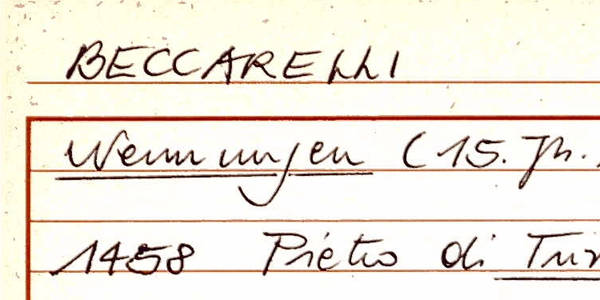 BECCARELLI
Nennungen (15. Jh.)
1458 Pietro di